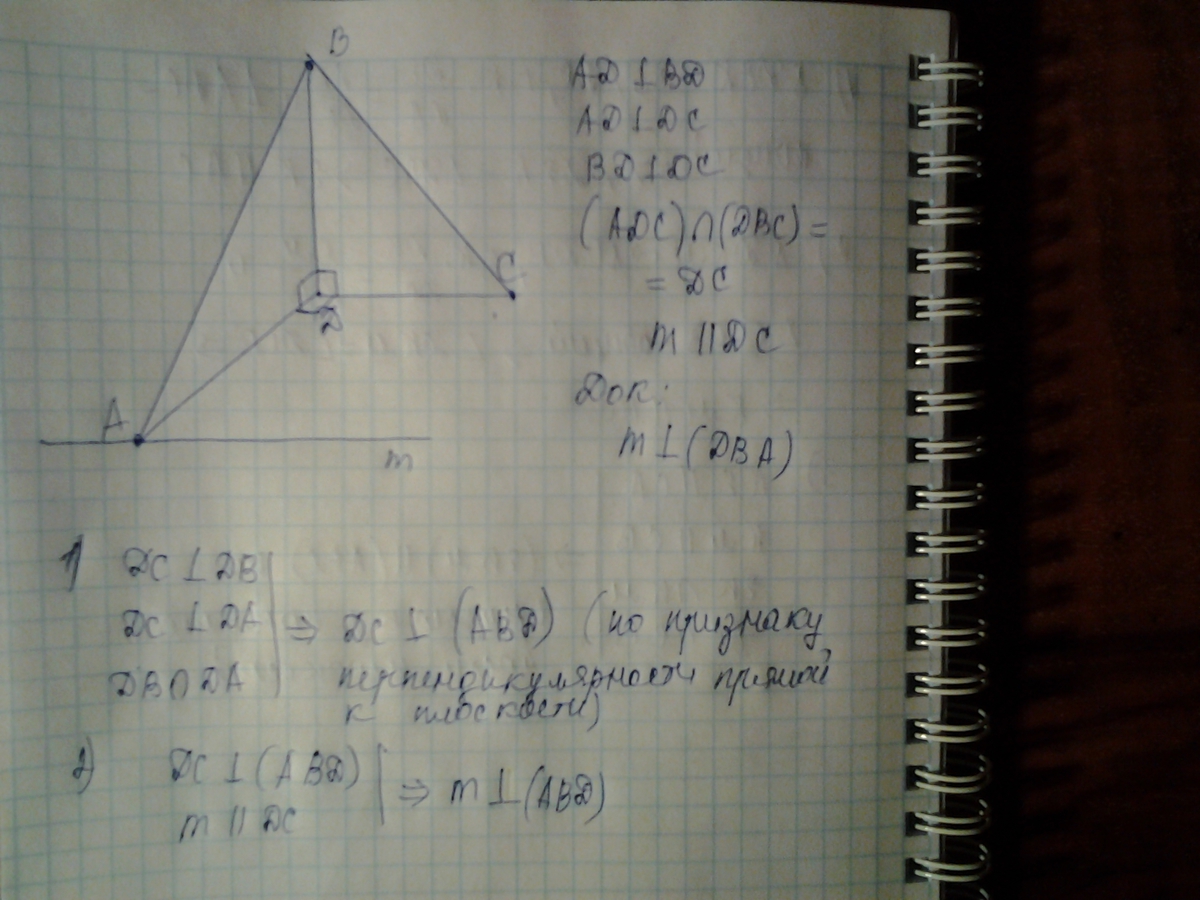 B
C
D
A
m
AD ⊥ BD
AD ⊥ DC
BD ⊥ DC
(ADC)∩(DBC) =
= DC
m || DC
Док:
m ⊥ (DBA)
1) DC ⊥ DB
DC ⊥ DA ⇒ DC ⊥ (ABD) (по признаку
DB∩DA перпендикулярности прямой
к плоскости)
2) DC ⊥ (ABD)
m || DC ⇒ m ⊥ (ABD)